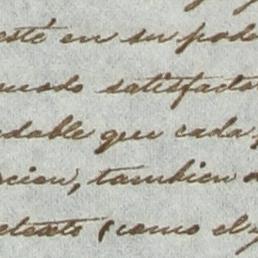 esté en su pode
modo satisfacto
dable que cada
cion, tambien
(como el